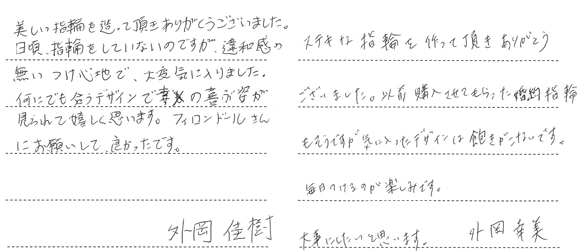 美しい指輪を造って頂きありがとうございました。
日頃、指輪をしていないのですが、違和感の
無いつけ心地で、大変気に入りました。
何にでも合うデザインで の喜ぶ姿が
見られて嬉しく思います。フィロンドールさん
にお願いして、良かったです。
外岡 佳樹
ステキな指輪を作って頂きありがとう
ございました。以前購入させてもらった婚約指輪
もそうですが気に入ったデザインは飽きがこないです。
毎日つけるのが楽しみです。
大事にしたいと思います。 外岡 幸美